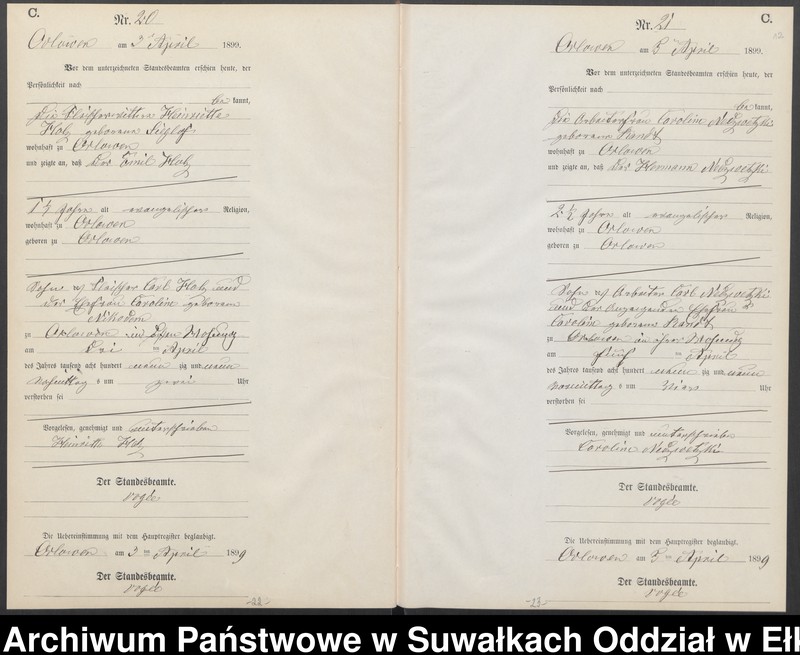 C.
Nr. 20
Orlowen am 3ten April 1899.
Vor dem unterzeichneten Standesbeamten erschien heute, der
Persönlichkeit nach
be kannt,
die Henriette
Hotz geborene
wohnhaft zu Orlowen
und zeigte an, daß der Emil Hotz
Jahre alt evangelischer Religion,
wohnhaft zu Orlowen
geboren zu Orlowen
Sohn des Fleischer Carl Hotz und
der Ehefrau Caroline geborene
Nikodem
zu Orlowen in Wohnung
am drei ten April
des Jahres tausend acht hundert neun zig und neun
Nachmittag s um zwei Uhr
verstorben sei
Vorgelesen, genehmigt und unterschrieben
Henriette Hotz
Der Standesbeamte.
Rogée
Die Uebereinstimmung mit dem Hauptregister beglaubigt.
Orlowen am 3 ten April 1899
Der Standesbeamte.
Rogée
-22-
C.
Nr. 21
Orlowen am 5ten April 1899.
Vor dem unterzeichneten Standesbeamten erschien heute, der
Persönlichkeit nach
be kannt,
die Arbeiterfrau Caroline
geborene
wohnhaft zu Orlowen
und zeigte an, daß der Hermann
2½ Jahre alt evangelischer Religion,
wohnhaft zu Orlowen
geboren zu Orlowen
Sohn des Arbeiter Carl
und der Ehefrau
Caroline geborene
zu Orlowen in ihrer Wohnung
am fünf ten April
des Jahres tausend acht hundert neun zig und neun
Nachmittag s um Uhr
verstorben sei
Vorgelesen, genehmigt und unterschrieben
Caroline
Der Standesbeamte.
Rogée
Die Uebereinstimmung mit dem Hauptregister beglaubigt.
Orlowen am 5 ten April 1899
Der Standesbeamte.
Rogée
-23-
Archiwum Państwowe w Suwałkach Oddział w Ełk